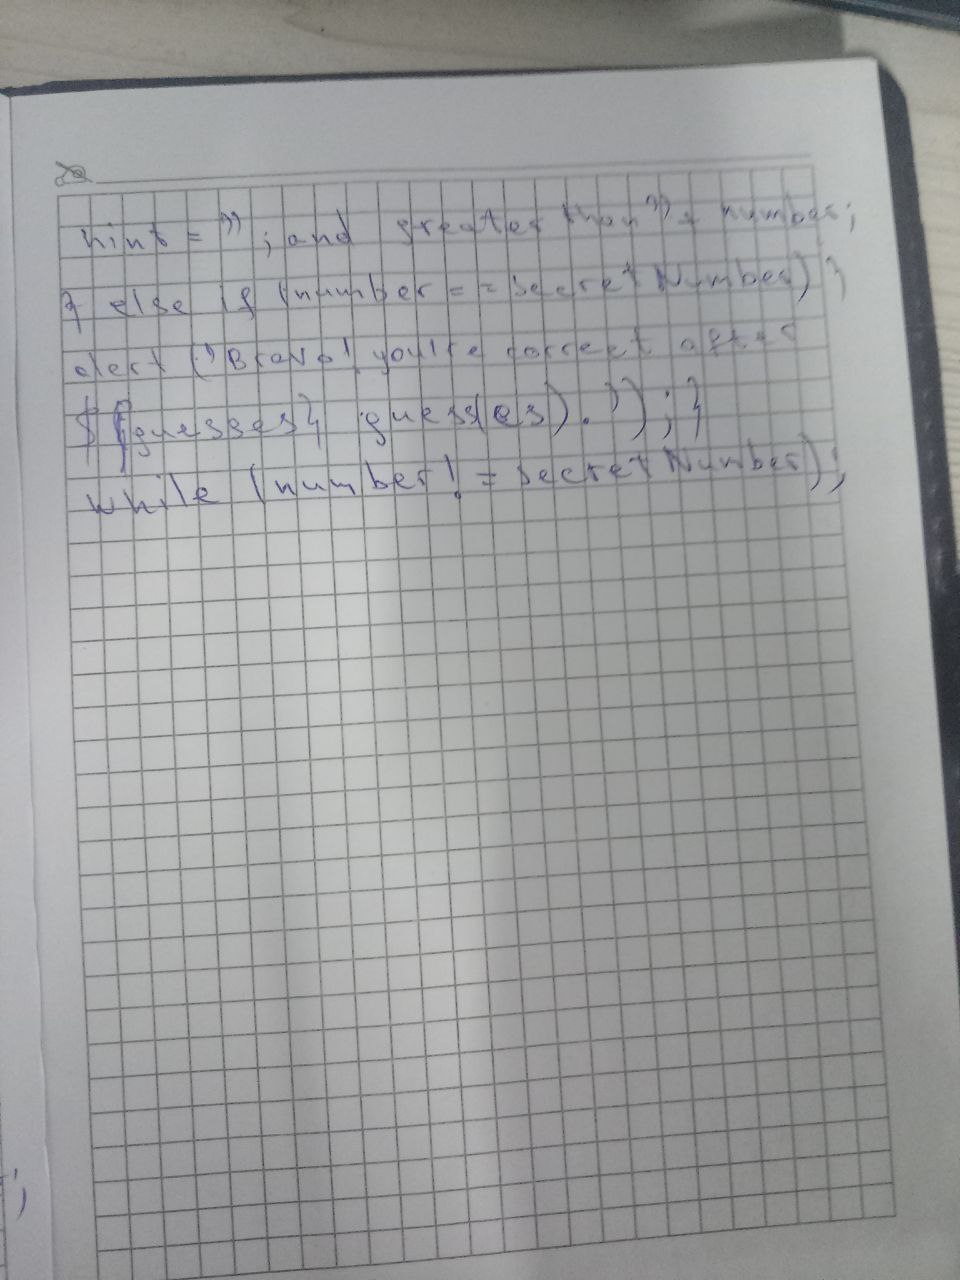 hint = ”; and greater than” + number;
} else if (number == secretNumber) }
alert (”Bravo! you're correct after
${guesses} guess(es).”);}
while (number! = secretNumber);
;